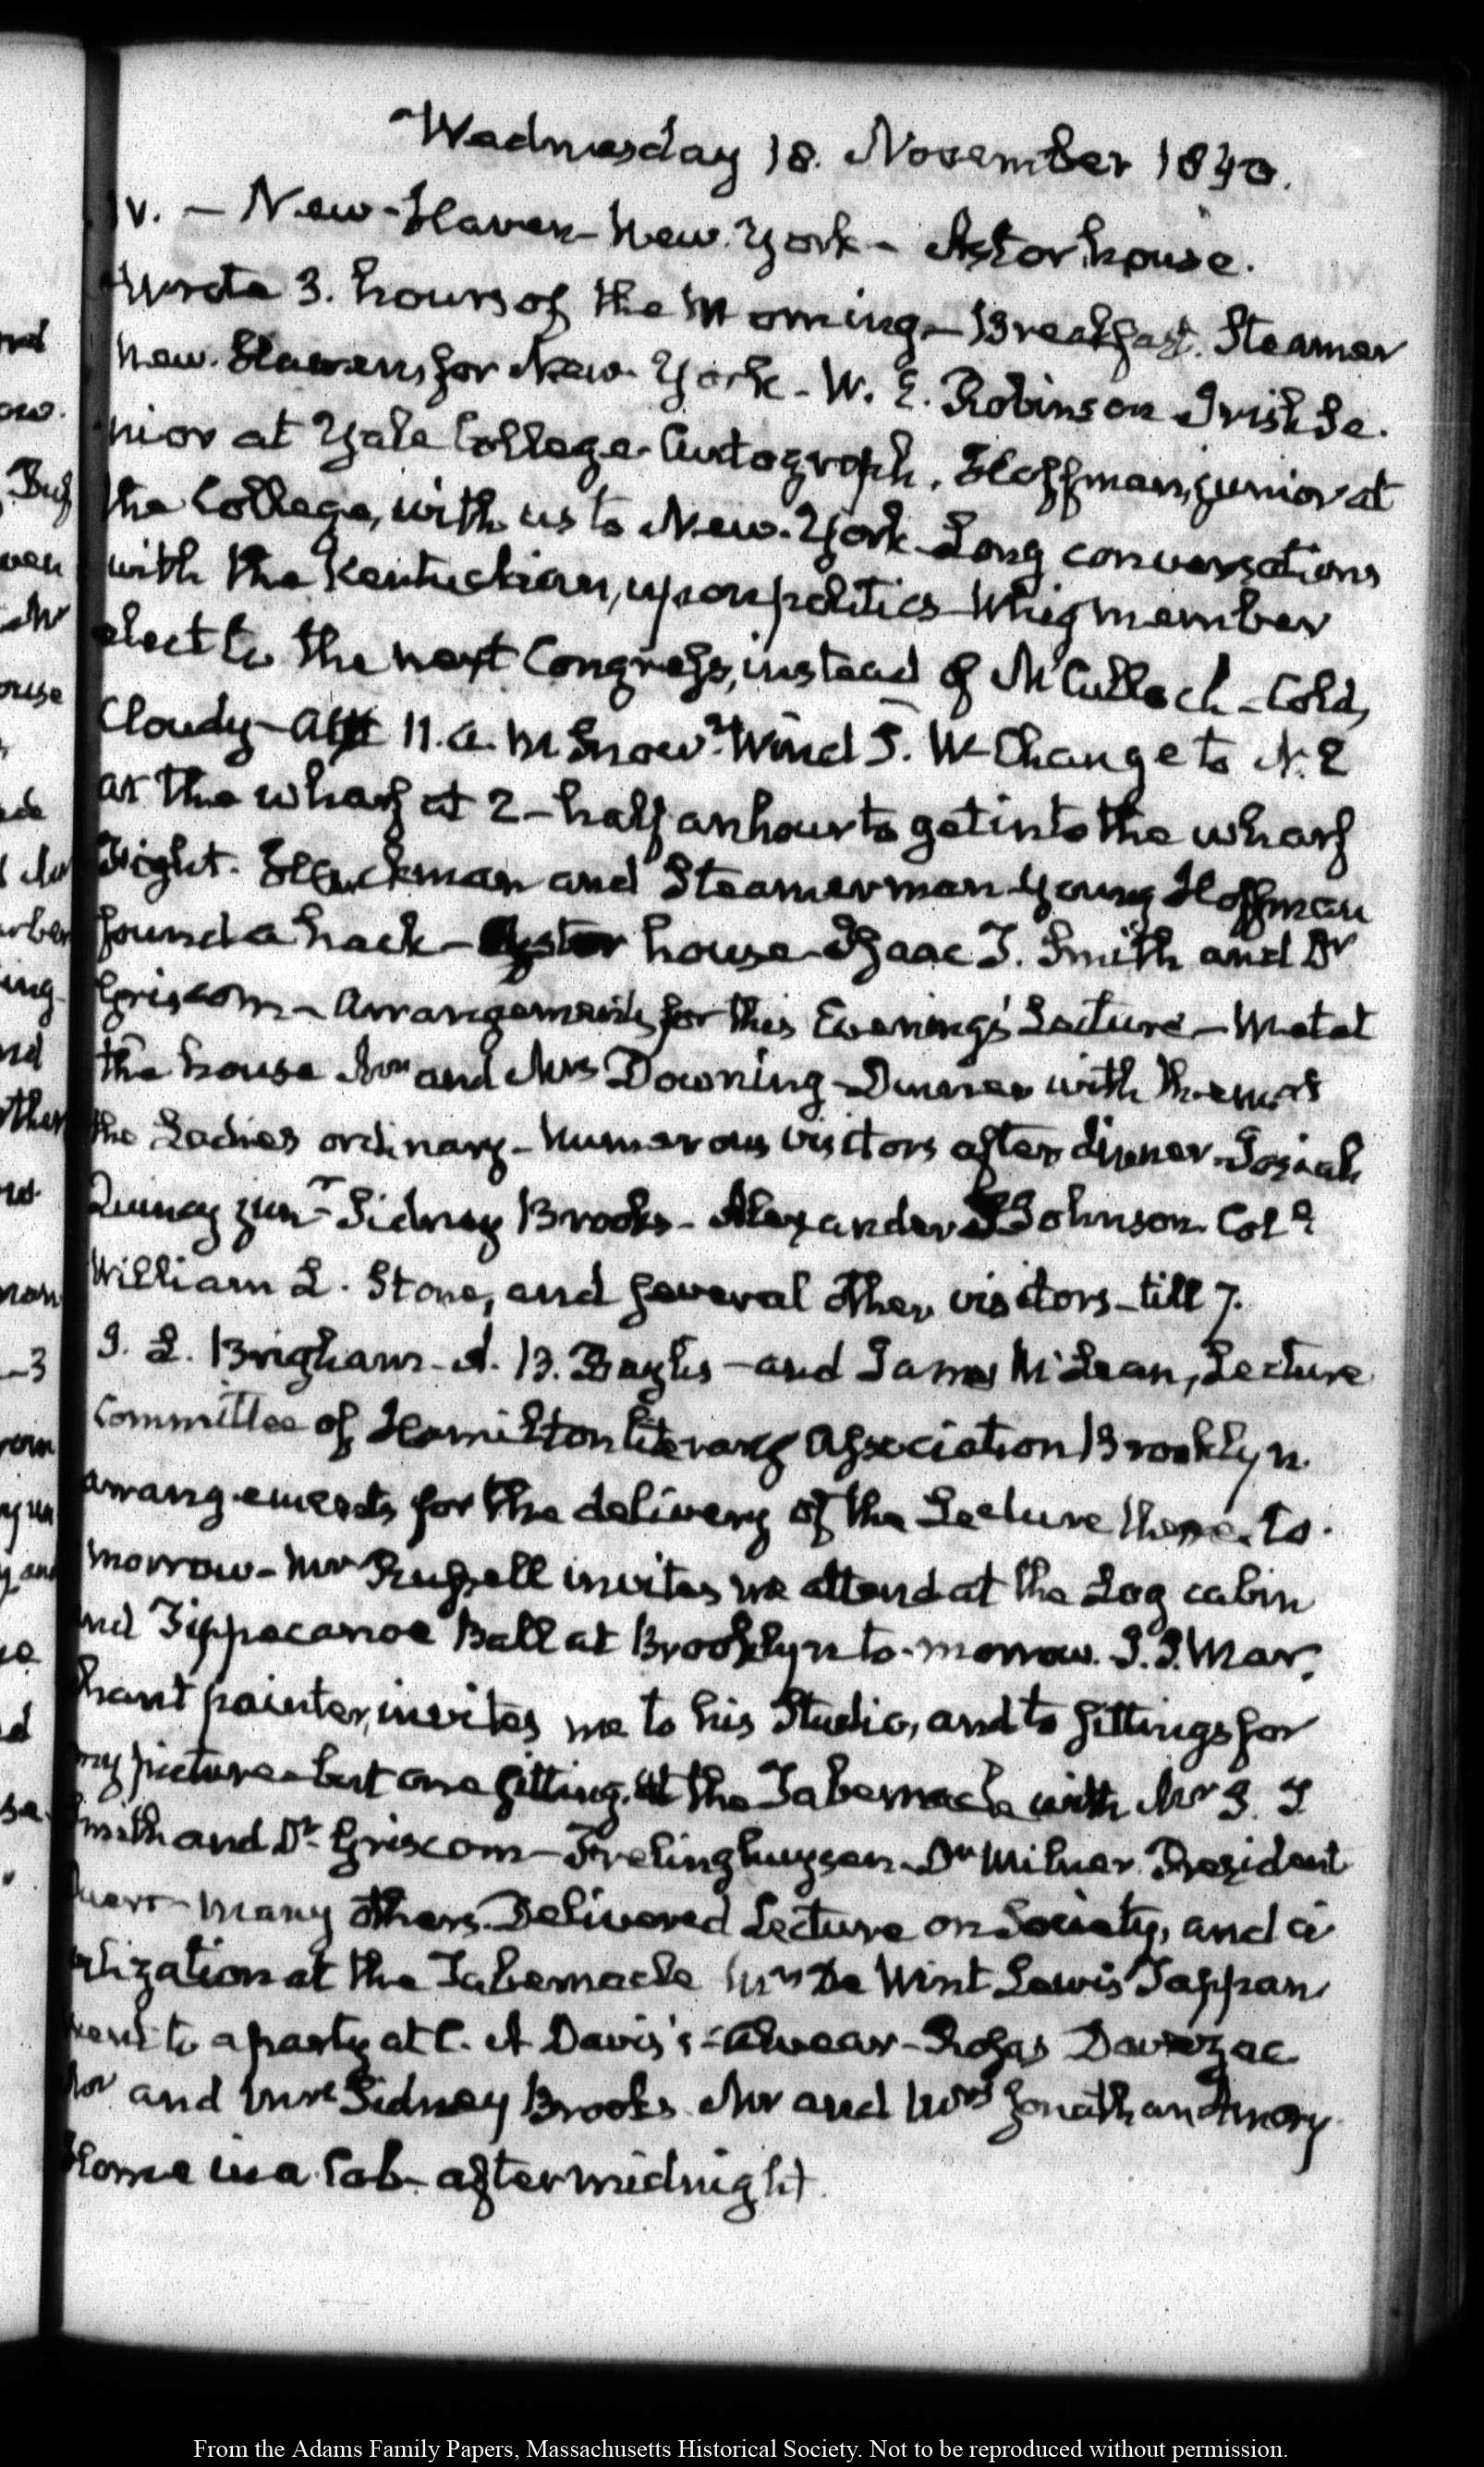 Wednesday 18. November 1840.
IV. – New-Haven – New-York – Astor house.
Wrote 3. hours of the Morning – Breakfast. Steamer
New. Haven, for New-York – W. E. Robinson Irish Se-
nior at Yale College Autograph. Hoffman, junior at
the College, with us to New-York Long conversations
with the Kentuckian, upon politics – Whig member
elect to the next Congress, instead of McCulloch – Cold,
Cloudy – at 11. a.m. Snow. Wind S. W. Change to N. E
at the wharf at 2 – half an hour to get into the wharf
Fight. Hackman and Steamerman young Hoffman
found a hack – Astor house Isaac T. Smith and Dr
Griscom – Arrangements for this Evening's Lecture – Met at
the house Mr and Mrs Downing – Dinner with them at
the Ladies ordinary – Numerous visitors after dinner. Josiah
Quincy junr Sidney Brooks – Alexander Johnson Col.
William L. Stone, and several other visitors – till 7.
J. L. Brigham – A. B. Bayles – and James McLean, Lecture
Committee of Hamilton literary Association Brooklyn
arrangements for the delivery of the Lecture there to-
morrow – Mr Russell invites me attend at the Log cabin
and Tippecanoe Ball at Brooklyn to-morrow.
painter, invites me to his Studio, and to sittings for
my picture – but one sitting. At the Tabernacle with Mr I. T.
Smith and Dr Griscom – Frelinghuysen – Dr Milnor President
Duer – many others. Delivered Lecture on Society, and ci
vilization at the Tabernacle Mrs De Wint Lewis Tappan
went to a party at C. A Davis's – Alvear – Rosas Davezac
Mr and Mrs Sidney Brooks Mr and Mrs Jonathan Amory
Home in a Cab – after midnight.
From the Adams Family Papers, Massachusetts Historical Society. Not to be reproduced without permission.